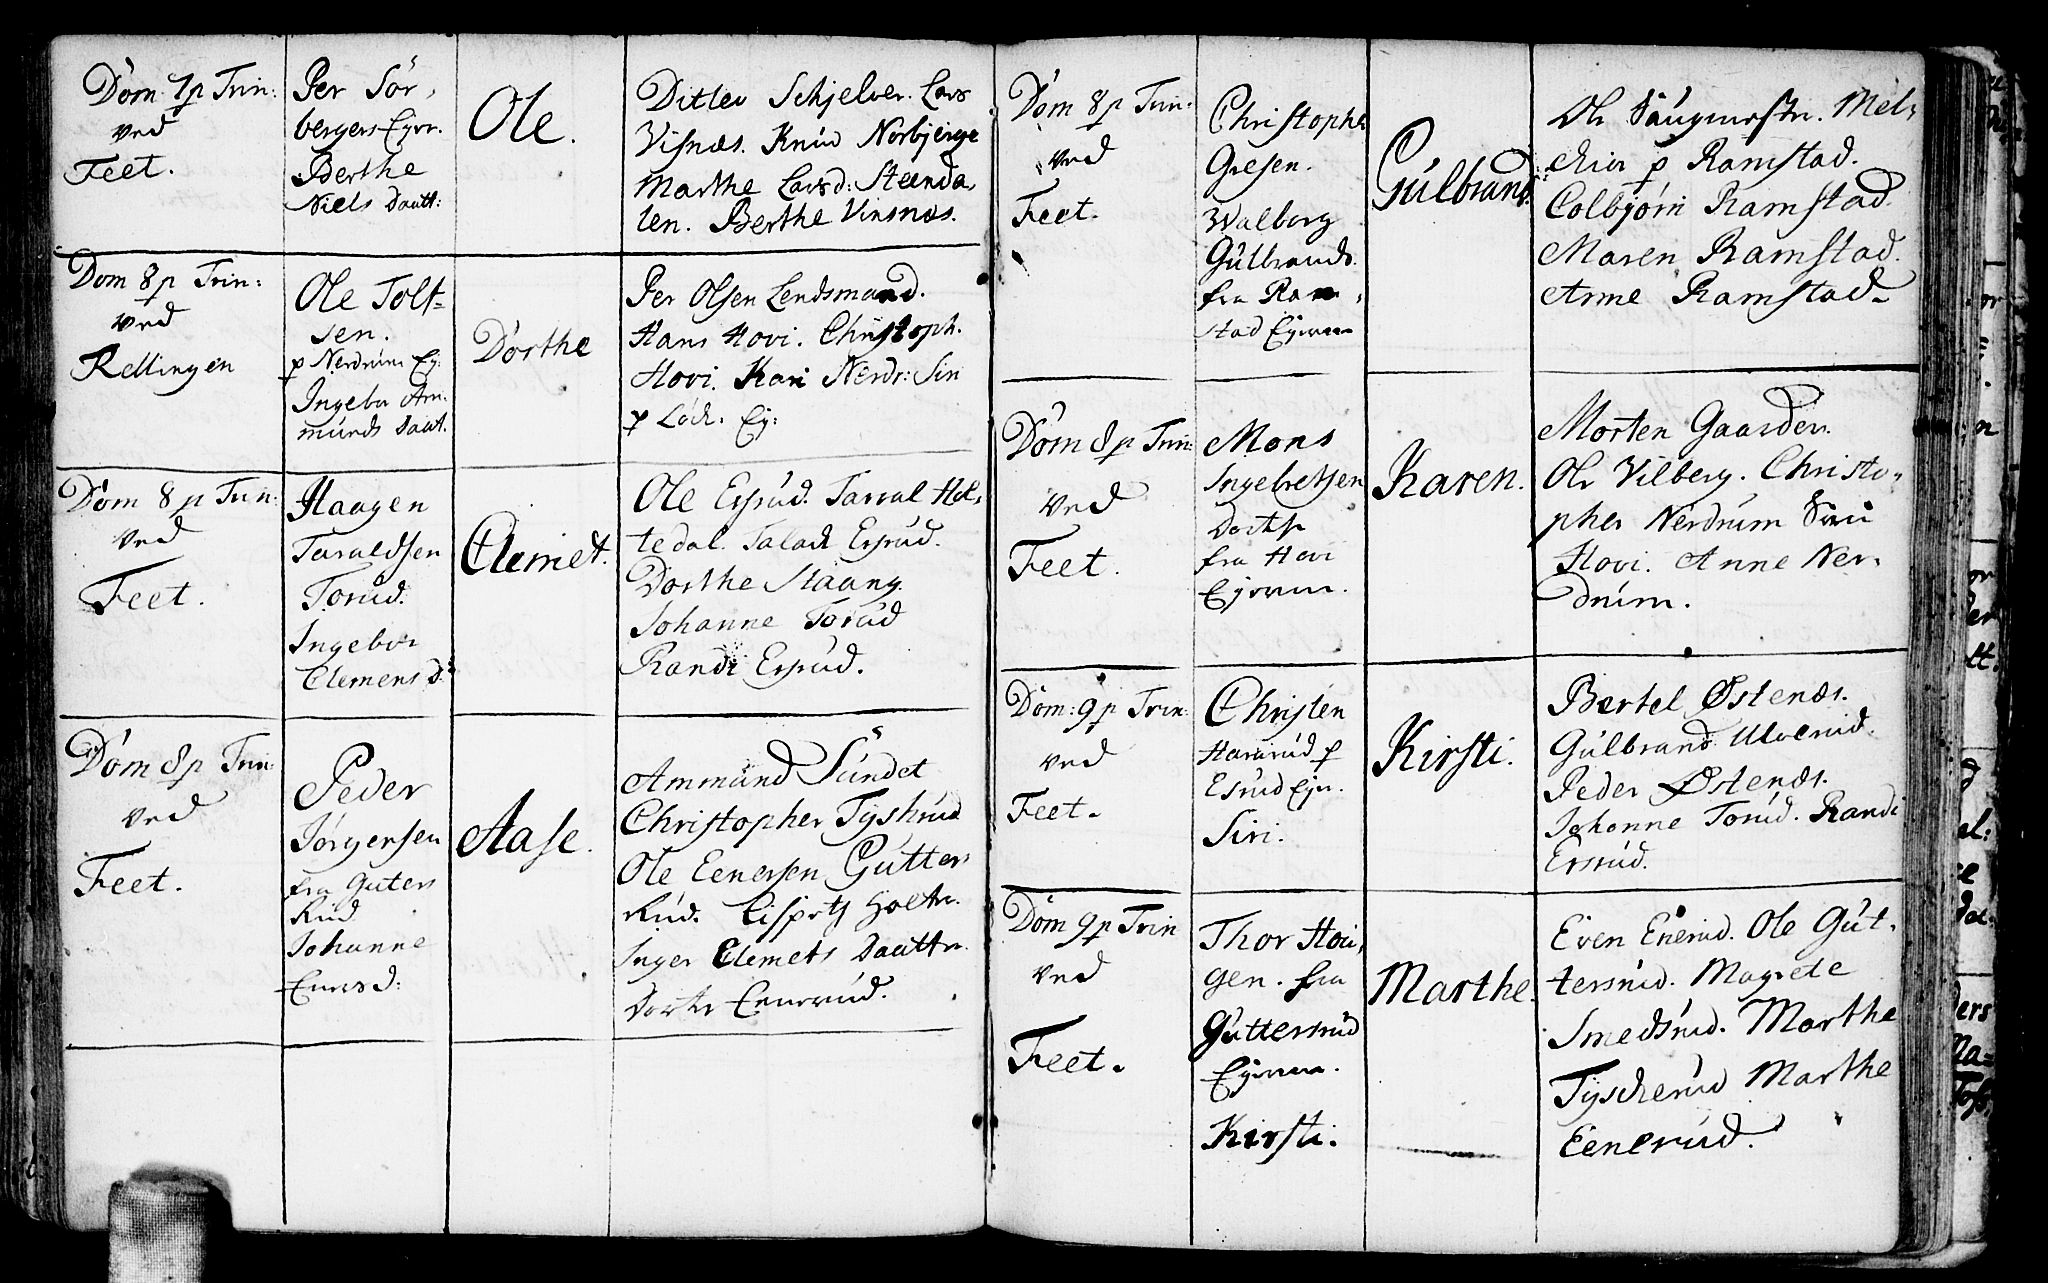 Dom 7 p Trin:
ved
Feet.
Per Sör,
bergers Eyer.
Berthe
Niels Daatt:
Ole.
Ditlev Schjelver. Lars
Visnæs. Knud Norbjerge
Marthe Larsd: Steenda,
len. Berthe Vinsnæs.
Dom 8 p Trin:
ved
Rellingen
Ole Tolf-
sen.
p Nerdrum Ey:
Ingebor Am-
munds Daat.
Dorthe
Per Olsen Lendsmand.
Hans Hovi. Christoph.
Hovi. Kari Nerdr: Siri
p Löch. Ey:
Dom 8 p Trin:
ved
Feet.
Haagen
Taraldsen
Torud.
Ingebor
Clemens d:
Clemet.
Ole Ersrud. Taraal Hol,
tedal. Ersrud.
Dorthe Haang.
Johanne Torud
Randi Ersrud.
Dom 8 p Trin:
ved
Feet.
Peder
Jörgensen
fra Guters
Rud
Johanne
Enersd:
Aase.
Ammund Sundet
Christopher Tyskrud
Ole Eenersen Gutter,
Rud.
Inger Clemets Daatter.
Dorthe Eenerud.
Dom 8 p Trin:
ved
Feet.
Christopher
Gresen.
Walborg
Gulbrands.
fra Ram,
stad Eyeren
Gulbrand.
Ole Saugmestr. Mel,
chior p Ramstad.
Colbjörn Ramstad.
Maren Ramstad.
Anne Ramstad.
Dom 8 p Trin:
ved
Feet.
Mons
Ingebretsen
Dorthe
fra Hovi
Eyeren.
Karen.
Morten Gaarder.
Ole Vilberg. Christo,
pher Nerdrum Siri
Hovi. Anne Ner,
drum.
Dom: 9 p Trin:
ved
Feet.
Christen
Hararud p
Esrud Eyer.
Siri.
Kirsti.
Bertel Østenes.
Gulbrand Ulverud.
Peder Østenes.
Johanne Torud. Randi
Ersrud.
Dom 9 p Trin
ved
Feet.
Thor Hovi,
gen. fra
Guttersrud
Eyeren.
Kirsti.
Marthe.
Even Enerud. Ole Gut,
tersrud. Magrete
Smedsrud. Marthe
Tyscherud Marthe
Eenerud.